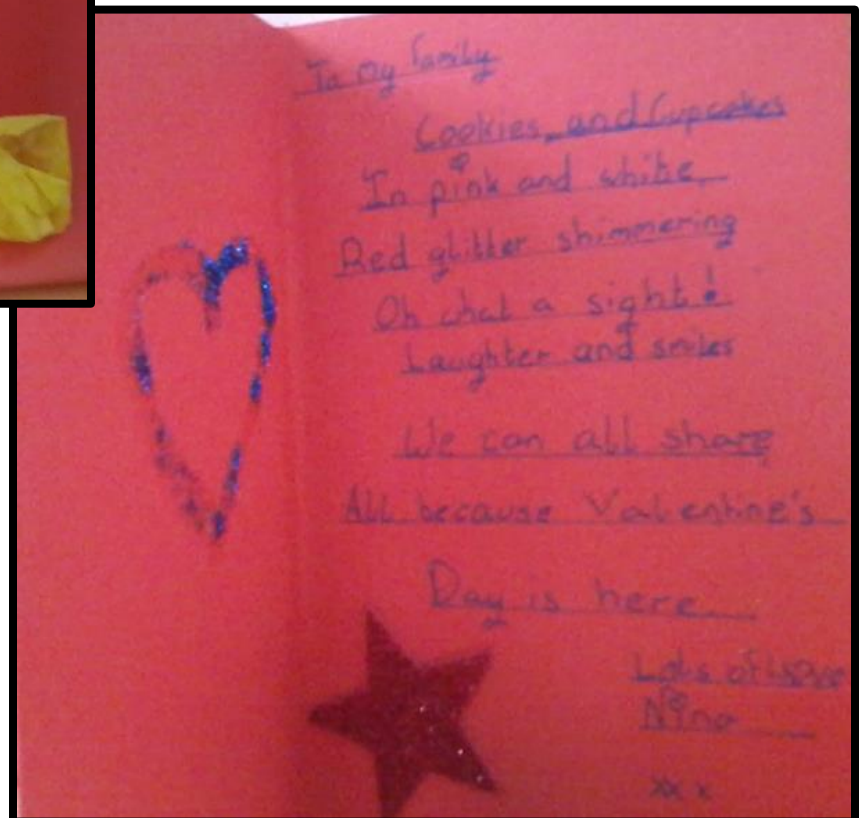 To my family
Cookies and Cupcakes
In pink and white
Red glitter shimmering
Oh what a sight!
Laughter and smiles
We can all share
All because Valentine's
Day is here
Lots of Love
Nina
xxx